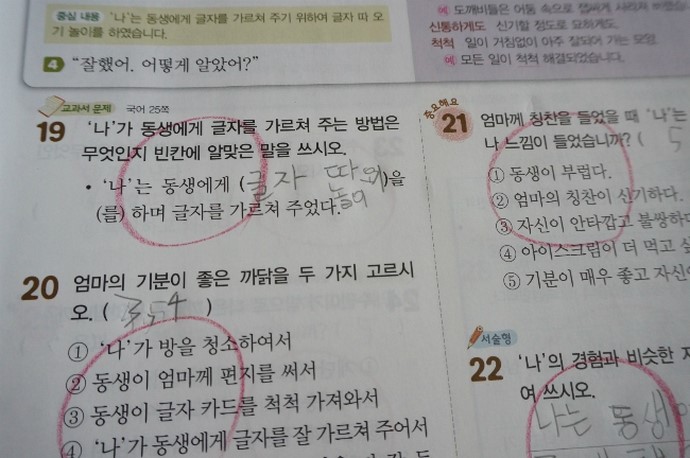 중심 내용 '나'는 동생에게 글자를 가르쳐 주기 위하여 글자 따 오
기 놀이를 하였습니다.
4 "잘했어. 어떻게 알았어?"
도깨비들은 어둠 속으로
신통하게도 신기할 정도로 묘하게도.
척척 일이 거침없이 아주 잘되어 가는 모양.
예 모든 일이 척척 해결되었습니다.
교과서 문제 국어 25쪽
19 '나'가 동생에게 글자를 가르쳐 주는 방법은
무엇인지 빈칸에 알맞은 말을 쓰시오.
• '나'는 동생에게 (글자 따오기)을
놀이
(를) 하며 글자를 가르쳐 주었다.
20 엄마의 기분이 좋은 까닭을 두 가지 고르시
오. ( 3, 4 )
① '나'가 방을 청소하여서
② 동생이 엄마께 편지를 써서
③ 동생이 글자 카드를 척척 가져와서
④ '나'가 동생에게 글자를 잘 가르쳐 주어서
중요해요
21 엄마께 칭찬을 들었을 때 '나'는
나 느낌이 들었습니까? ( 5
① 동생이 부럽다.
② 엄마의 칭찬이 신기하다.
③ 자신이 안타깝고 불쌍하다
④ 아이스크림이 더 먹고 싶
⑤ 기분이 매우 좋고 자신
서술형
22 '나'의 경험과 비슷한
여 쓰시오.
나는 동생